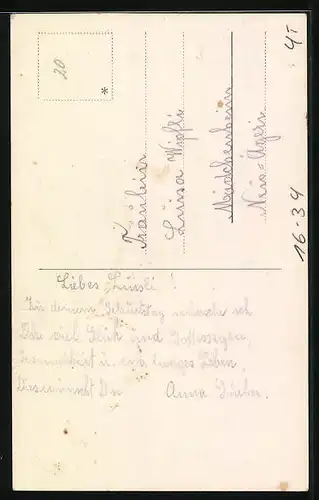 20
4T
16-34
*
Fräulein
Luisa Wipfli
Mädchenheim
Neu-Ägeri
Liebes Luisli!
Zu deinem Geburtstag wünsche ich
Dir viel Glück und Gottessegen,
Gesundheit u. ein langes Leben.
Dies wünscht Dir Anna